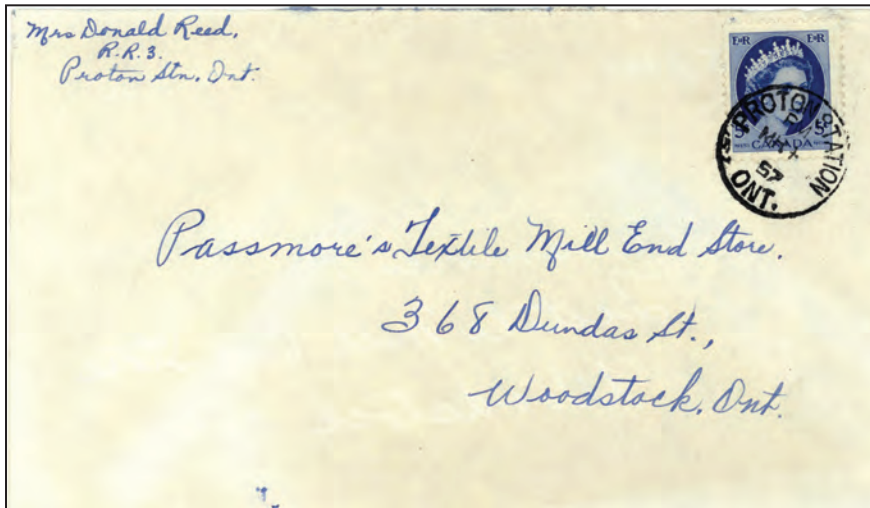 Mrs Donald Reed,
R.R.3.
Proton Stn. Ont.
E R E R
5 5
CANADA
PROTON STATION
PM
57
ONT.
Passmore's Textile Mill End Store.
368 Dundas St.,
Woodstock, Ont.